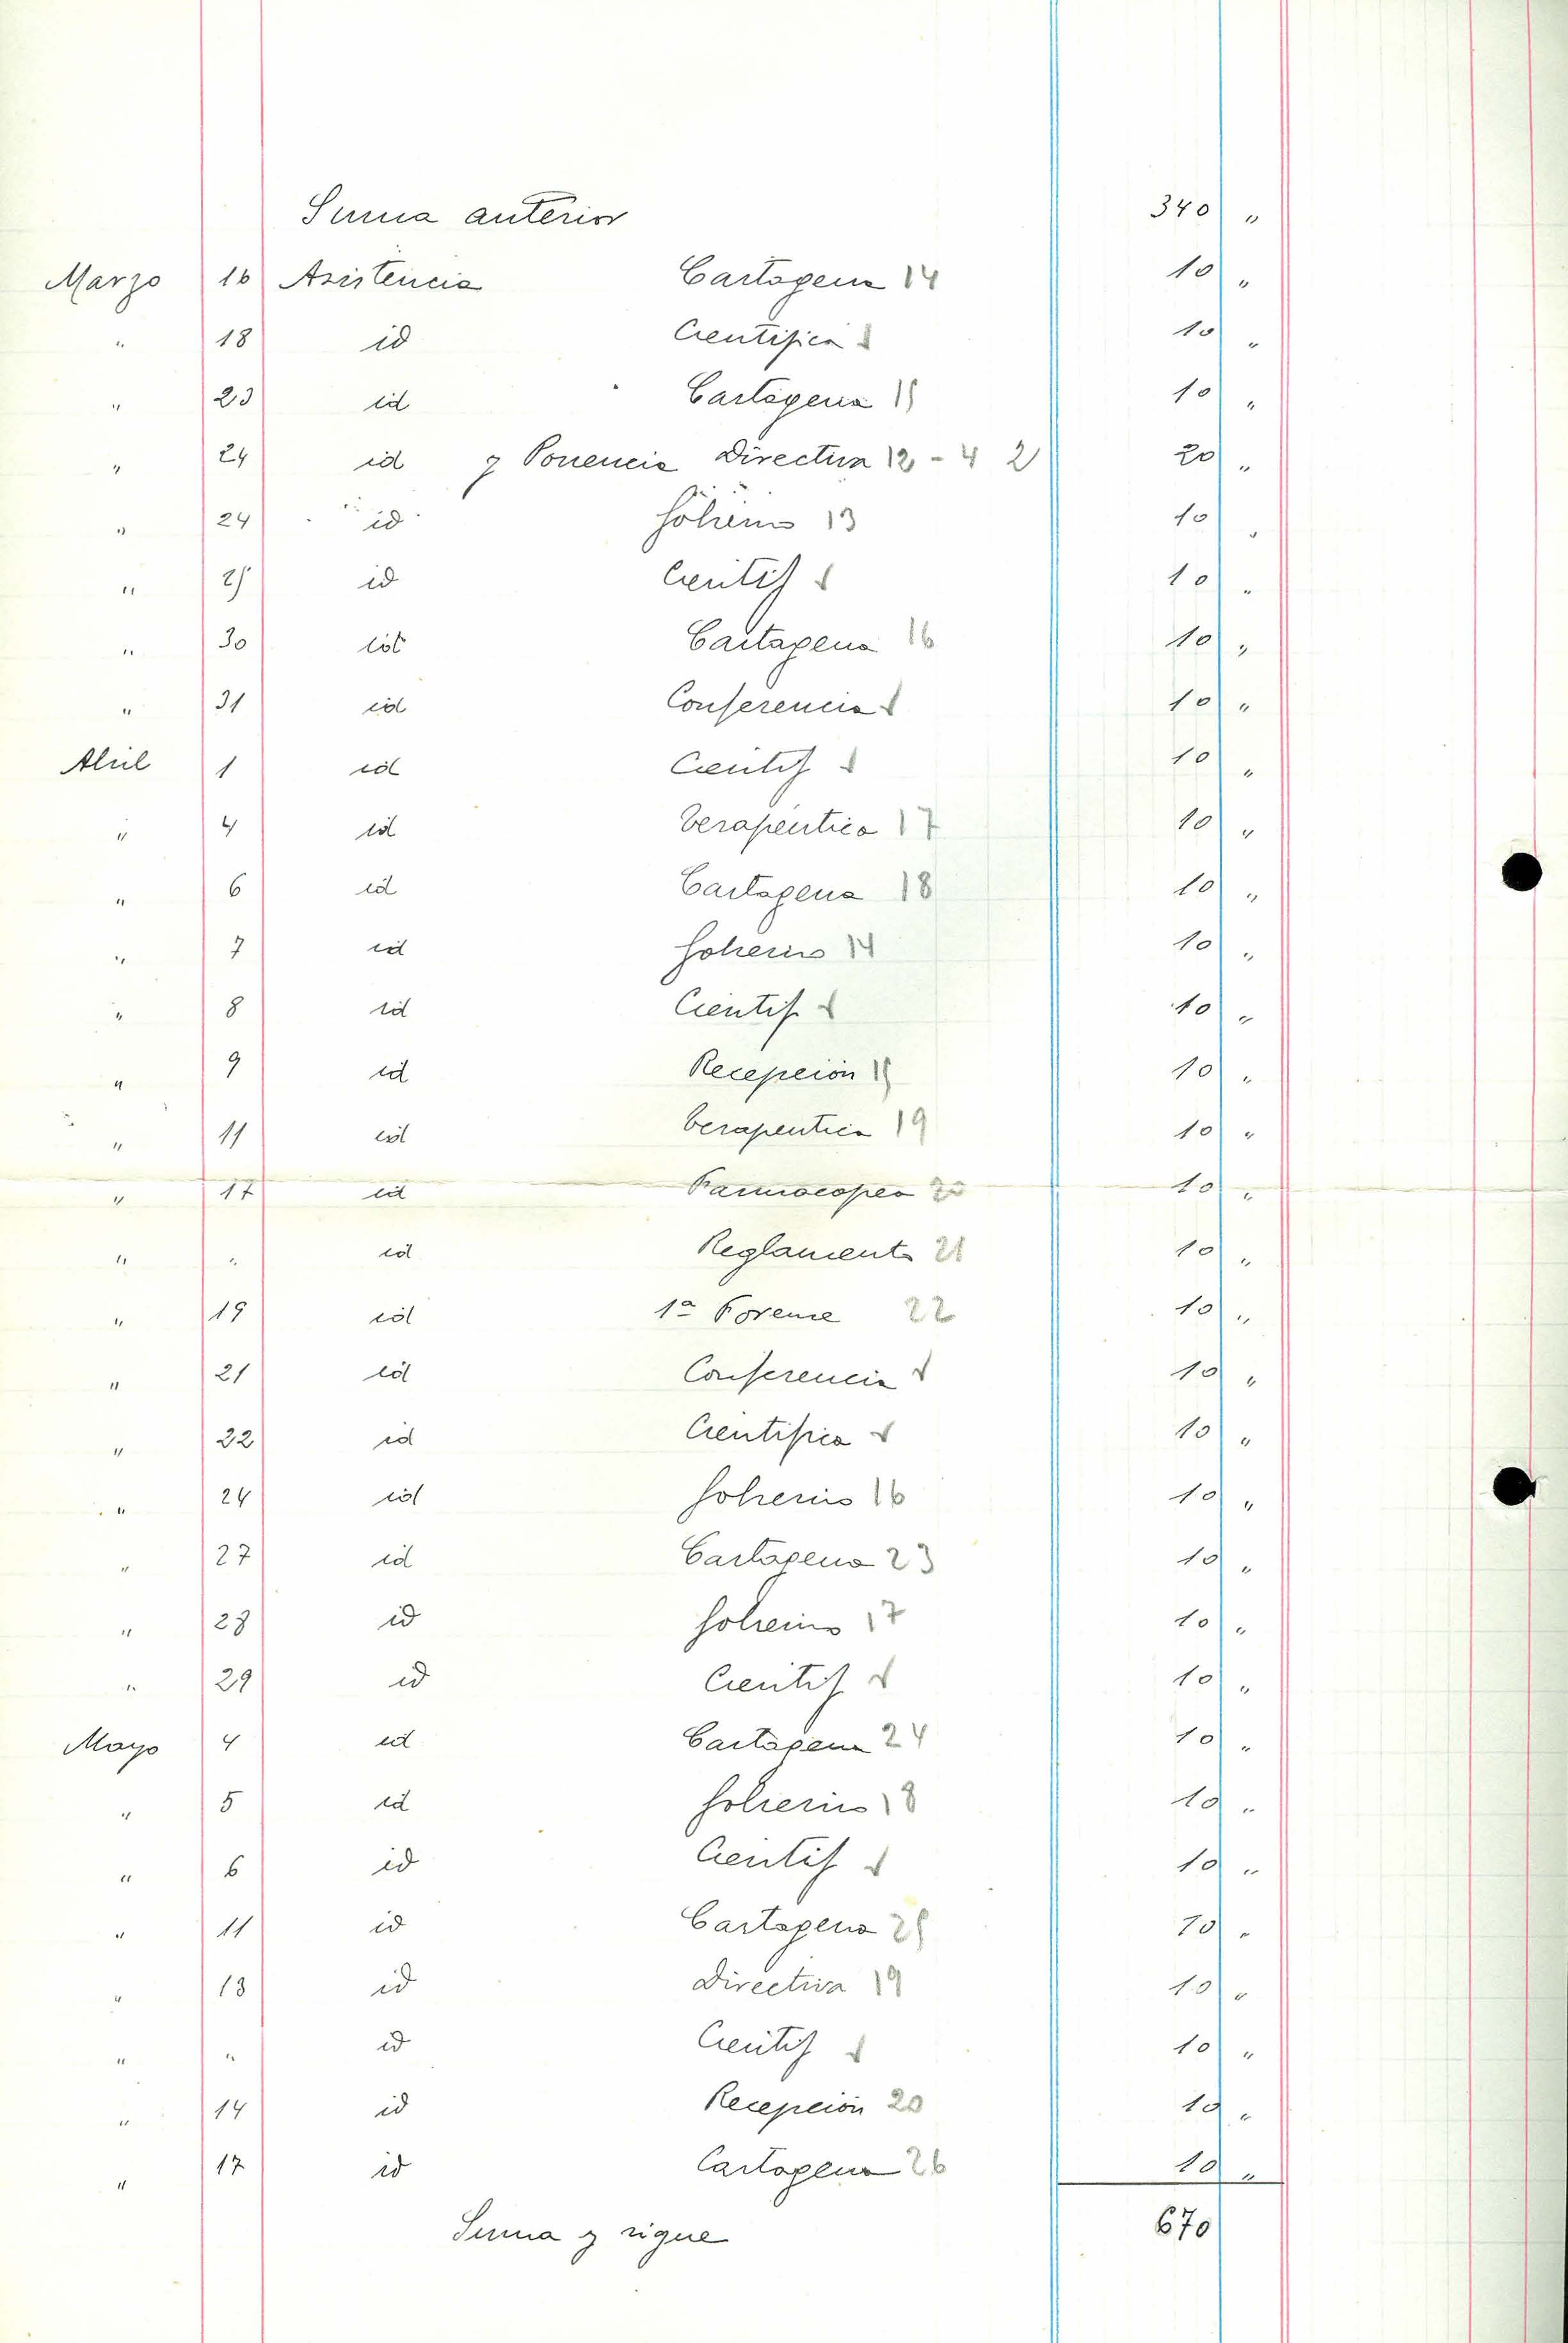 Suma anterior 340 "
Marzo 16 Asistencia Cartagena 14 10 "
" 18 id Cientifica 10 "
" 23 id Cartagena 15 10 "
" 24 id y Ponencia Directiva 12 - 4 2 20 "
" 24 id Gobierno 13 10 "
" 25 id Cientif 10 "
" 30 id Cartagena 16 10 "
" 31 id Conferencia 10 "
Abril 1 id Cientif 10 "
" 4 id Terapeutica 17 10 "
" 6 id Cartagena 18 10 "
" 7 id Gobierno 14 10 "
" 8 id Cientif. 10 "
" 9 id Recepción 15 10 "
" 11 id Terapeutica 19 10 "
" 17 id Farmacopea 20 10 "
" " id Reglamento 21 10 "
" 19 id 1ª Forense 22 10 "
" 21 id Conferencia 10 "
" 22 id Cientifica 10 "
" 24 id Gobierno 16 10 "
" 27 id Cartagena 23 10 "
" 28 id Gobierno 17 10 "
" 29 id Cientif 10 "
Mayo 4 id Cartagena 24 10 "
" 5 id Gobierno 18 10 "
" 6 id Cientif 10 "
" 11 id Cartagena 25 10 "
" 13 id Directiva 19 10 "
" " id Cientif 10 "
" 14 id Recepción 20 10 "
" 17 id Cartagena 26 10 "
Suma y sigue 670